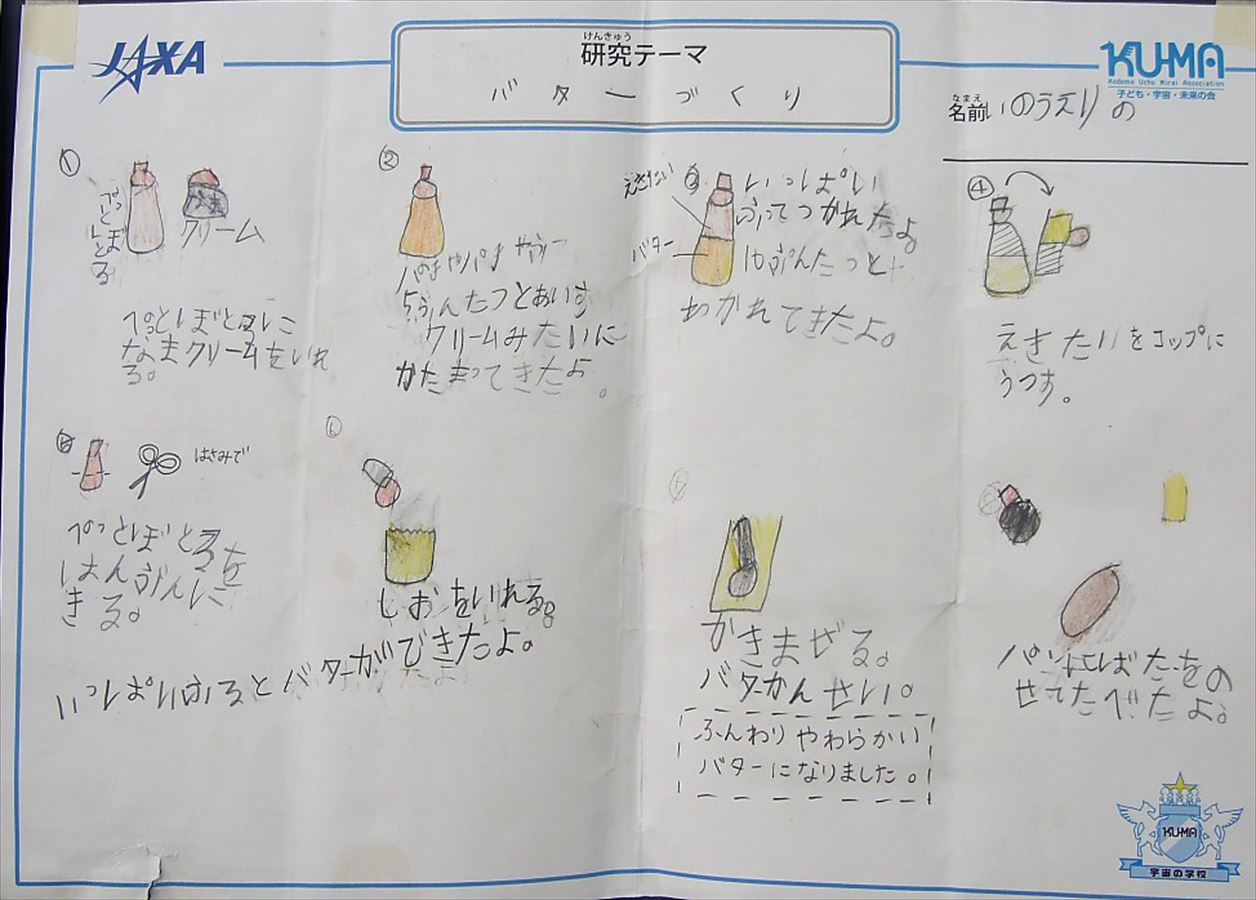 JAXA
けんきゅう
研究テーマ
バターづくり
KU-MA
Kodomo Uchu Mirai Association
子ども・宇宙・未来の会
なまえ
名前 いのうえりの
①
ぺっとぼとる
なま
クリーム
ぺっとぼとるに
なまクリームをいれ
る。
②
5ふんたつとあいす
クリームみたいに
かたまってきたよ。
③
えきたい
バター
いっぱい
ふってつかれたよ
10ぷんたつと
わかれてきたよ。
④
えきたいをコップに
うつす。
⑤
はさみで
ぺっとぼとるを
はんぶんに
きる。
⑥
しおをいれる。
いっぱいふるとバターができたよ。
⑦
かきまぜる。
バターかんせい。
ふんわりやわらかい
バターになりました。
パンにばたーをの
せてたべたよ。
KU-MA
宇宙の学校